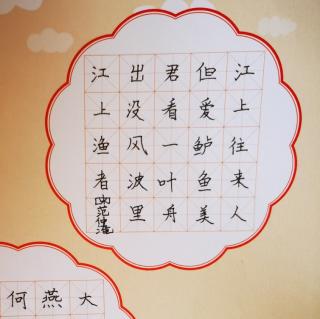 江上往来人
但爱鲈鱼美
君看一叶舟
出没风波里
江上渔者[宋]范仲淹
大
燕
何